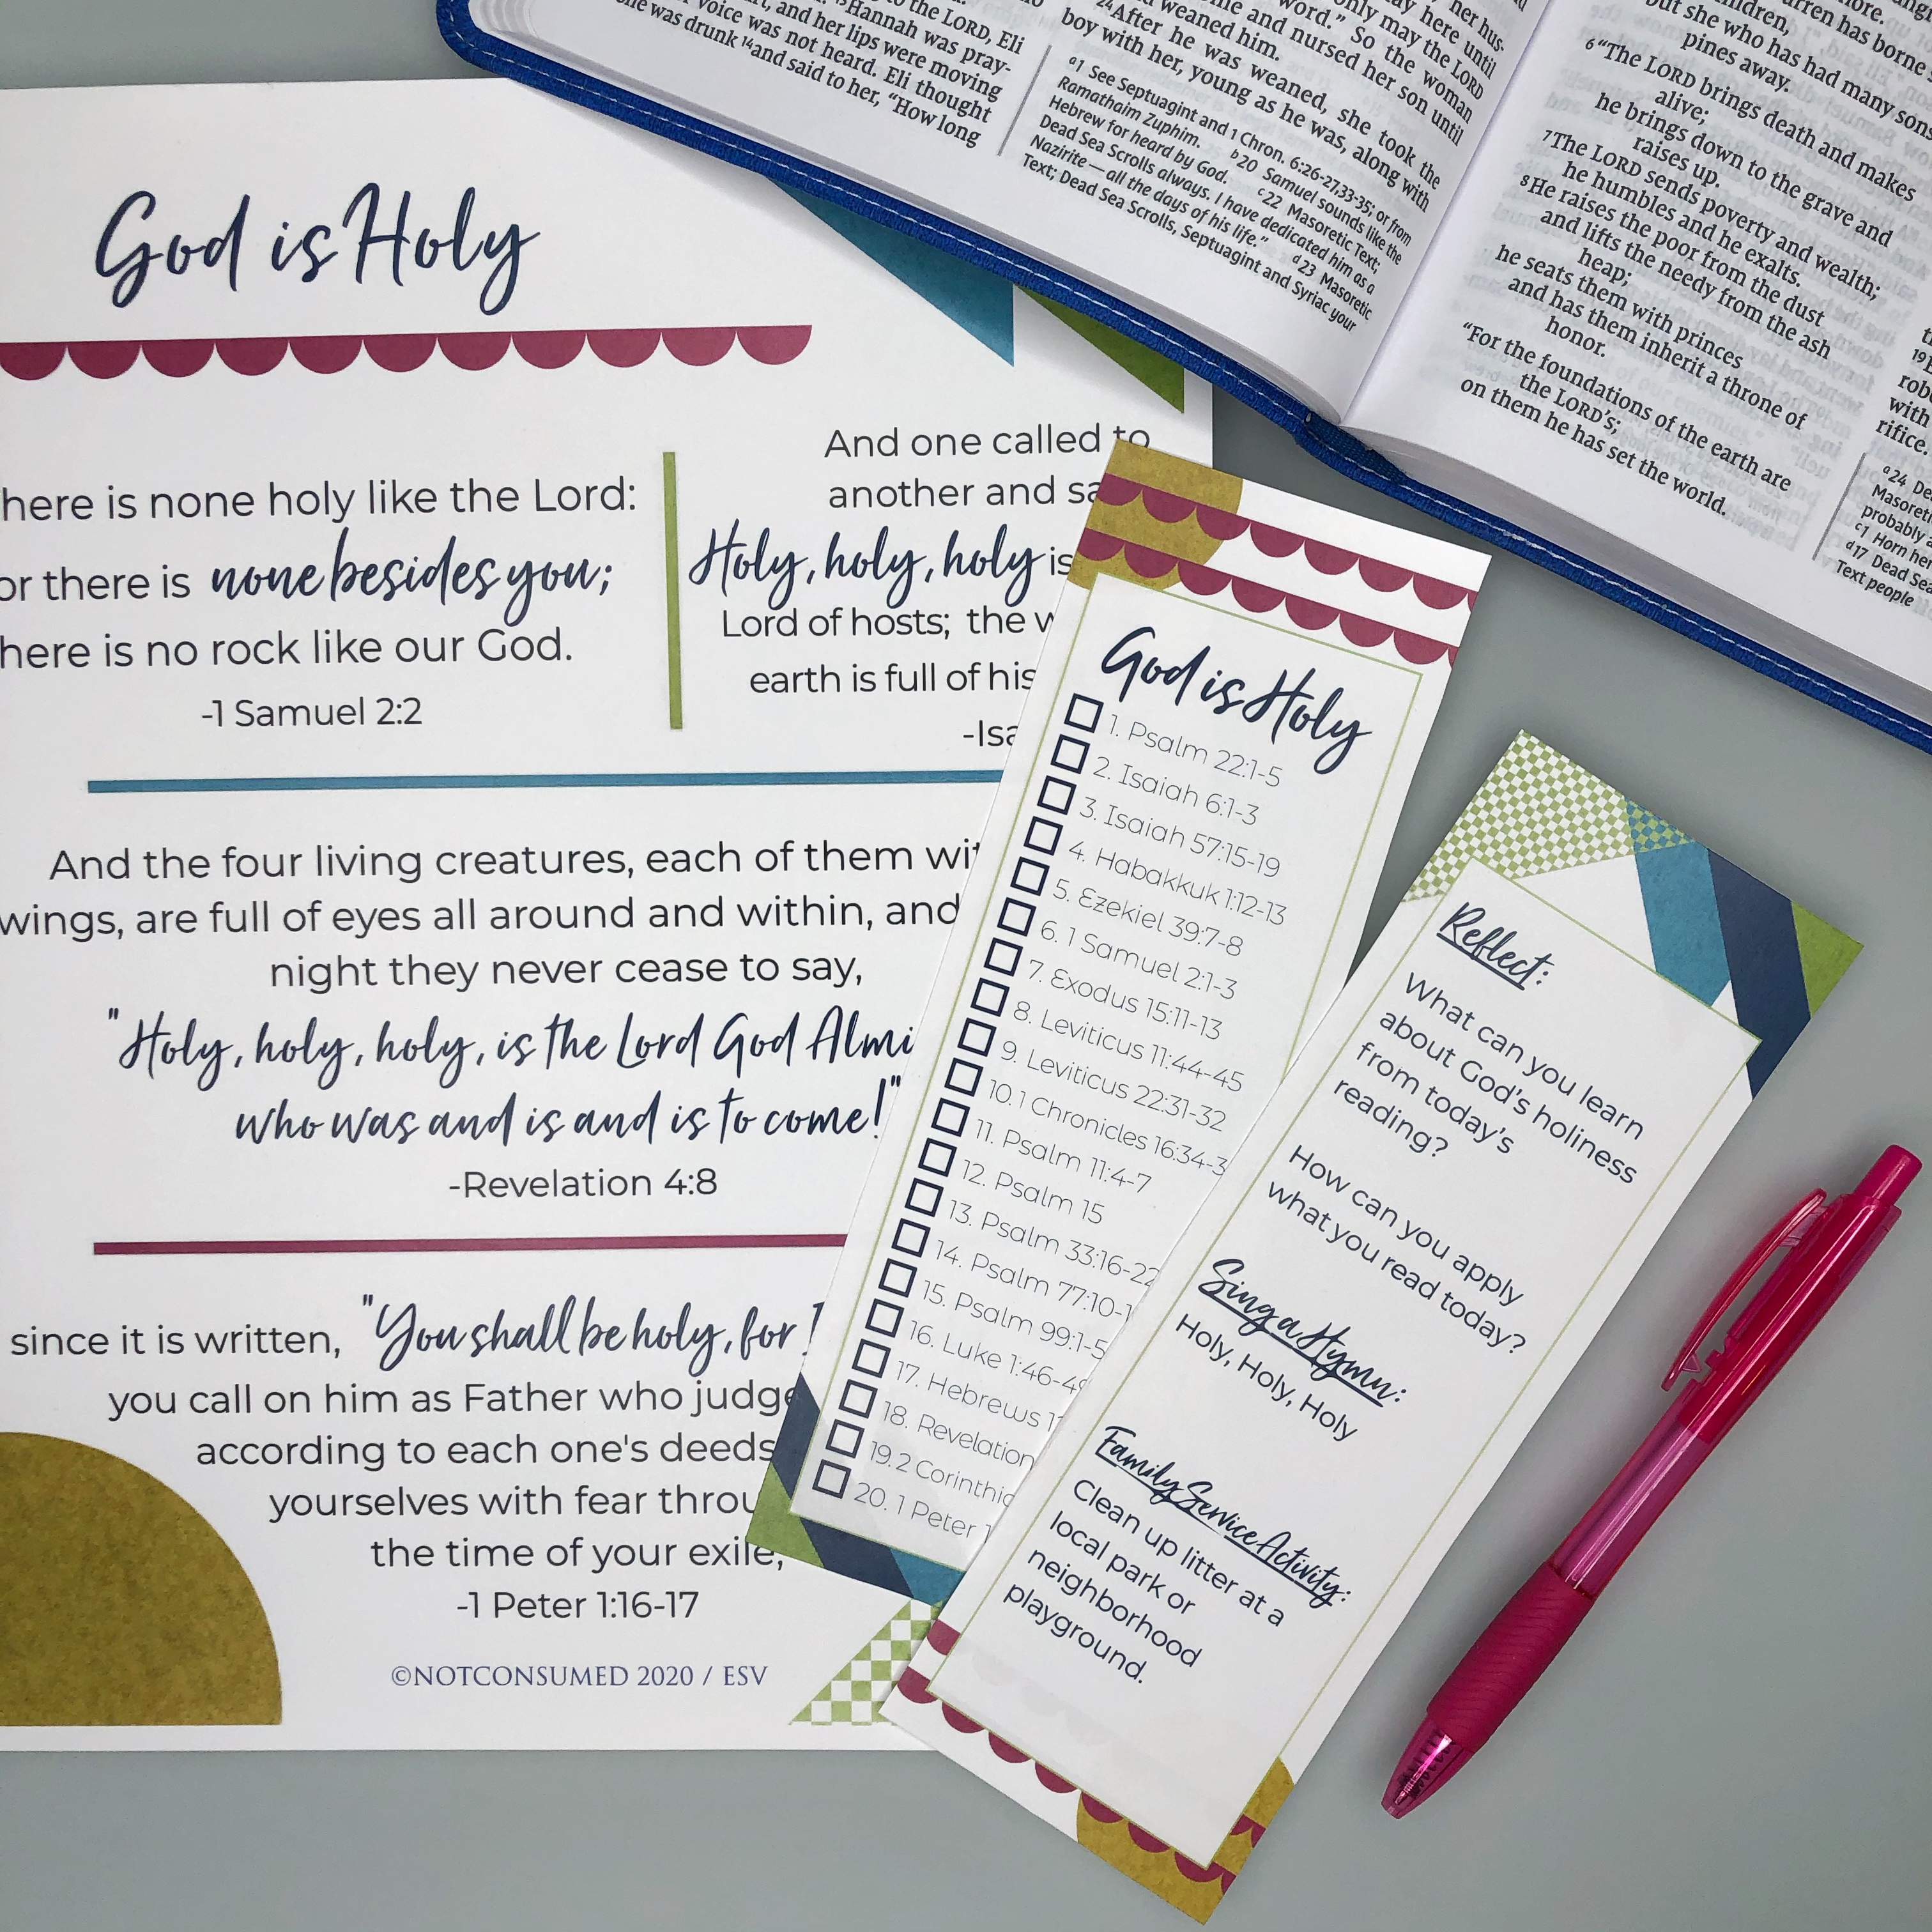 God is Holy
here is none holy like the Lord:
or there is none besides you;
here is no rock like our God.
-1 Samuel 2:2
And one called to
another and sa
Holy, holy, holy is
Lord of hosts; the w
earth is full of his
-Isa
And the four living creatures, each of them wit
wings, are full of eyes all around and within, and
night they never cease to say,
"Holy, holy, holy, is the Lord God Almi
who was and is and is to come!"
-Revelation 4:8
since it is written, "You shall be holy, for I
you call on him as Father who judge
according to each one's deeds
yourselves with fear throu
the time of your exile,
-1 Peter 1:16-17
©NOTCONSUMED 2020 / ESV
God is Holy
1. Psalm 22:1-5
2. Isaiah 6:1-3
3. Isaiah 57:15-19
4. Habakkuk 1:12-13
5. Ezekiel 39:7-8
6. 1 Samuel 2:1-3
7. Exodus 15:11-13
8. Leviticus 11:44-45
9. Leviticus 22:31-32
10. 1 Chronicles 16:34-3
11. Psalm 11:4-7
12. Psalm 15
13. Psalm 33:16-22
14. Psalm 77:10-1
15. Psalm 99:1-5
16. Luke 1:46-49
17. Hebrews 1
18. Revelation
19. 2 Corinthic
20. 1 Peter 1
Reflect:
What can you learn
about God's holiness
from today's
reading?
How can you apply
what you read today?
Sing a Hymn:
Holy, Holy, Holy
Family Service Activity:
Clean up litter at a
local park or
neighborhood
playground.
to the LORD, Eli
Hannah was pray-
, and her lips were moving
voice was not heard. Eli thought
she was drunk 14and said to her, "How long
here until
only may the LORD
word." So the woman
and nursed her son until
weaned him.
24After he was weaned, she took the
boy with her, young as he was, along with
a1 See Septuagint and 1 Chron. 6:26-27,33-35; or from
Ramathaim Zuphim. b20 Samuel sounds like the
Hebrew for heard by God. c22 Masoretic Text;
Dead Sea Scrolls always. I have dedicated him as a
Nazirite—all the days of his life." d23 Masoretic
Text; Dead Sea Scrolls, Septuagint and Syriac your
has borne
but she who has had many sons
pines away.
6"The LORD brings death and makes
alive;
he brings down to the grave and
raises up.
7The LORD sends poverty and wealth;
he humbles and he exalts.
8He raises the poor from the dust
and lifts the needy from the ash
heap;
he seats them with princes
and has them inherit a throne of
honor.
"For the foundations of the earth are
the LORD's;
on them he has set the world.
rob
with
rifice.
a24 De
Masoreti
probably a
c1 Horn her
d17 Dead Sea
Text people